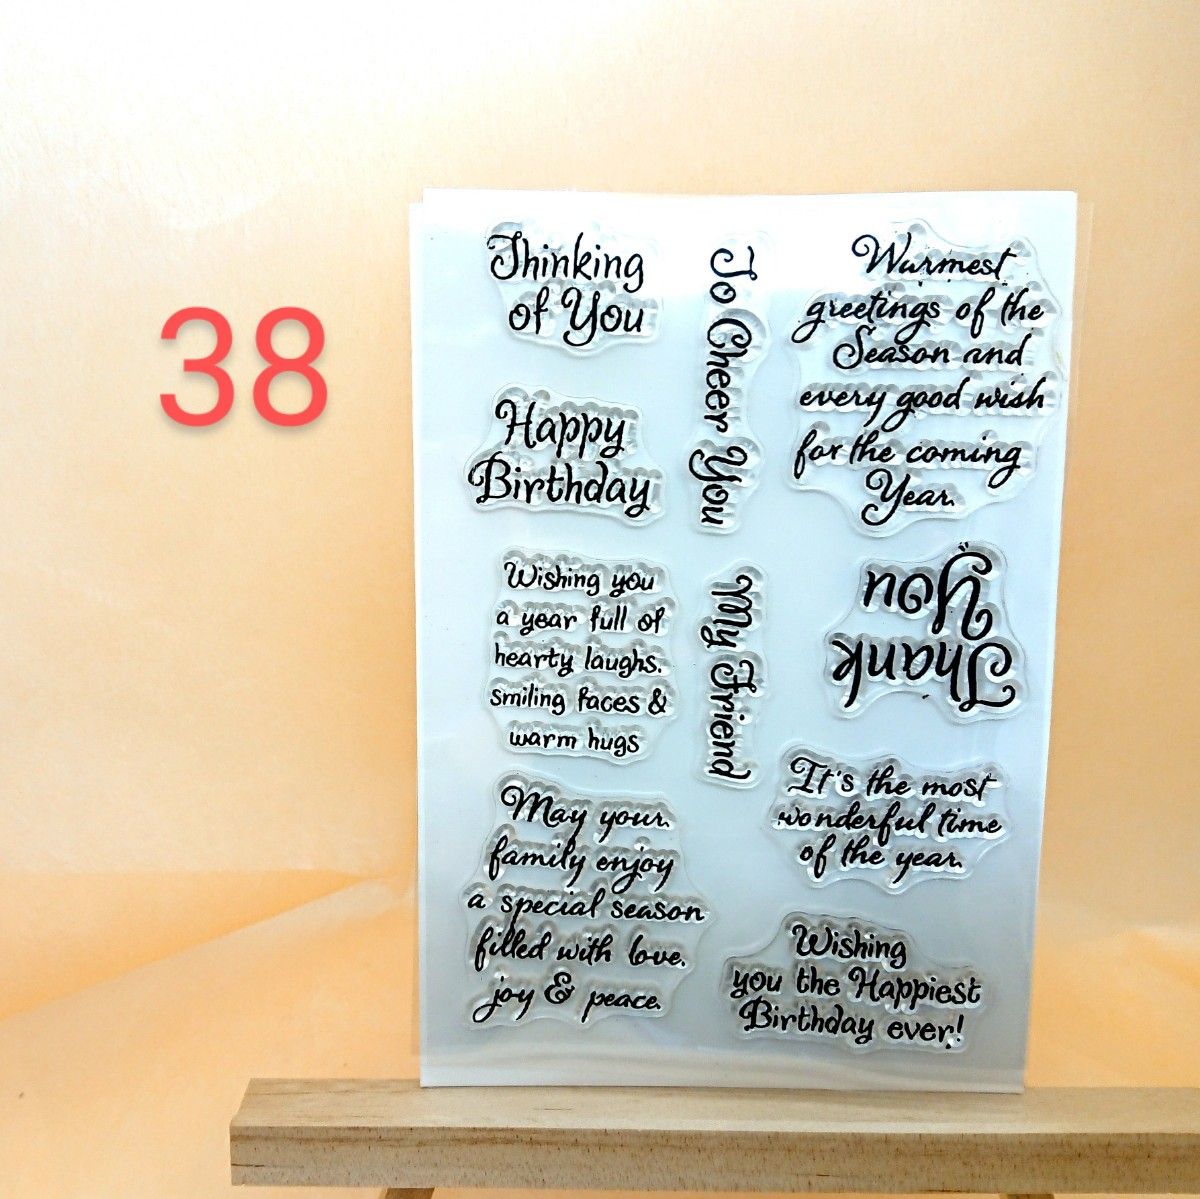 38
Thinking
of You
Happy
Birthday
Wishing you
a year full of
hearty laughs,
smiling faces &
warm hugs
May your
family enjoy
a special season
filled with love,
joy & peace.
To Cheer You
My Friend
Warmest
greetings of the
Season and
every good wish
for the coming
Year.
Thank
You
It's the most
wonderful time
of the year.
Wishing
you the Happiest
Birthday ever!